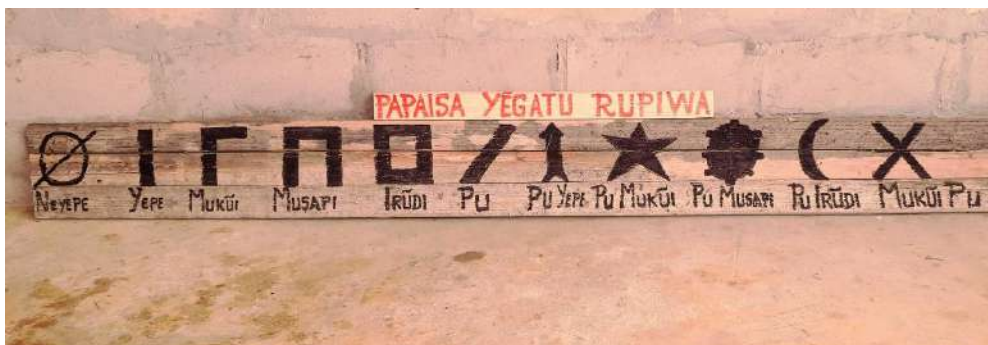 PAPAISA YẼGATU RUPIWA
NEYEPE YEPE MUKŨI MUSAPI IRŨDI PU PU YEPE PU MUKŨI PU MUSAPI PU IRŨDI MUKŨI PU